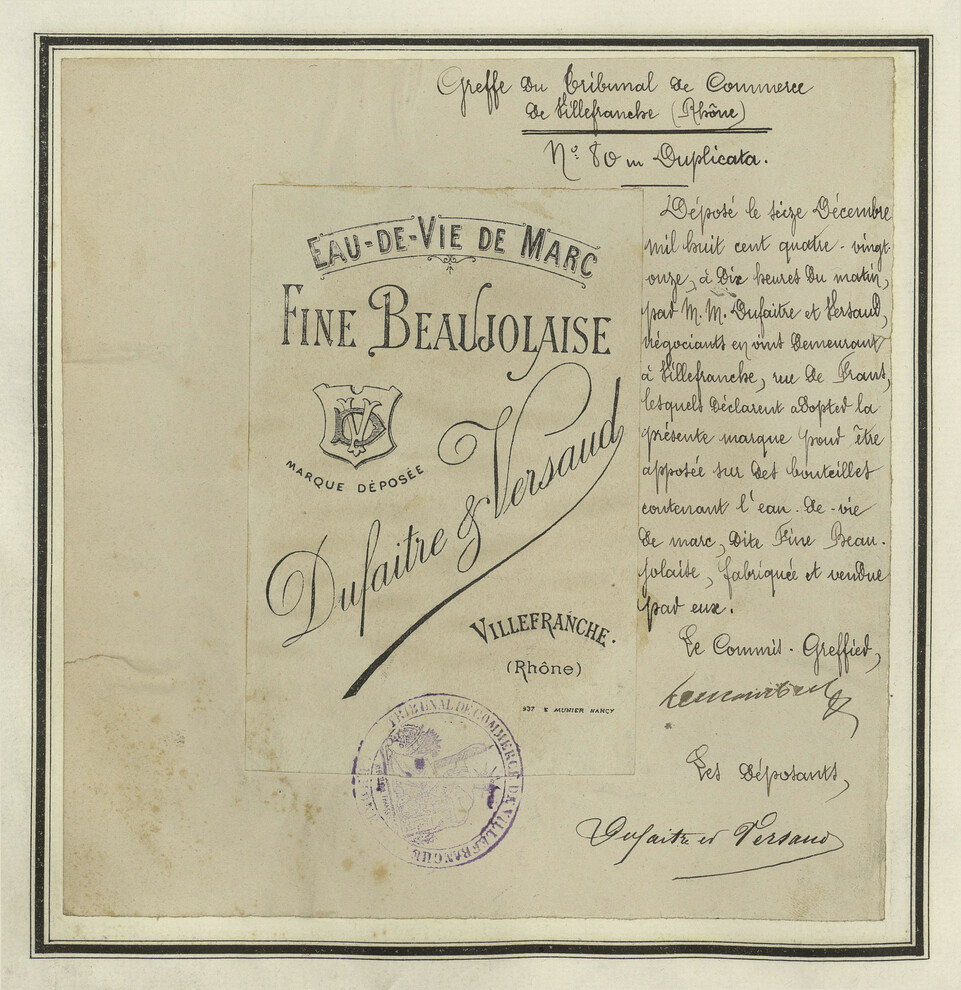 Greffe du Tribunal de Commerce
de Villefranche (Rhône)
Nº 80 Duplicata.
EAU-DE-VIE DE MARC
FINE BEAUJOLAISE
MARQUE DÉPOSÉE
Dufaitre & Versaud
VILLEFRANCHE.
(Rhône)
937 E MUNIER NANCY
TRIBUNAL DE COMMERCE DE VILLEFRANCHE
Déposé le seize Décembre
mil huit cent quatre-vingt
onze, à Dix heures du matin,
par M. M. Dufaitre et Versaud,
négociants en vins demeurant
à Villefranche, rue de Frans,
lesquels déclarent adopter la
présente marque pour être
apposée sur des bouteilles
contenant l'eau-de-vie
de marc, dite Fine Beau-
jolaise, fabriquée et vendue
par eux.
Le Commis-Greffier,
Les déposants,
Dufaitre et Versaud